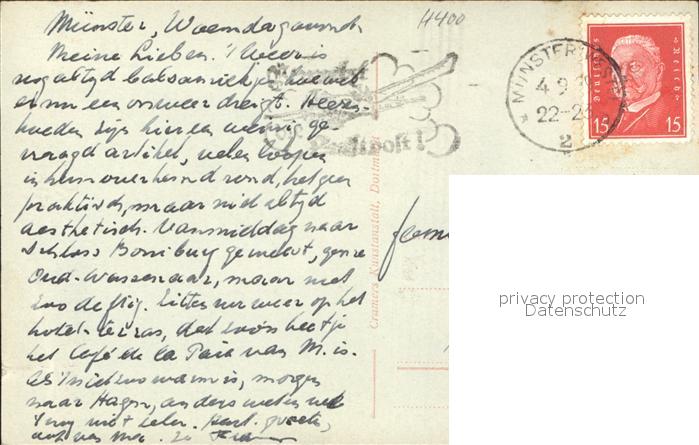 Münster, Woensdagavond.
Meine Lieben! Weer is
nog altyd balsamiek, hoewel
er nu een onweer dreigt. Heeren-
hoeden zijn hier een weinig ge-
vraagd artikel, velen loopen
in hun overhemd rond, hetgeen
praktisch, maar niet altyd
aesthetisch. Vanmiddag naar
Schloss geweest, genre
Oud-Wassenaar, maar niet
zoo deftig. Zitten nu weer op het
hotel-terras, dat zoo'n beetje
het Café de la Paix van M. is.
Als 't niet zoo warm is, morgen
naar Hagen, anders weten we
't nog niet zeker. Hart. groeten,
ook van
4400
Luftpost!
MÜNSTER (WESTF)
4.9.
22-2
2
Deutsches Reich
15 15
Cramers Kunstanstalt, Dortmund
fam
privacy protection
Datenschutz